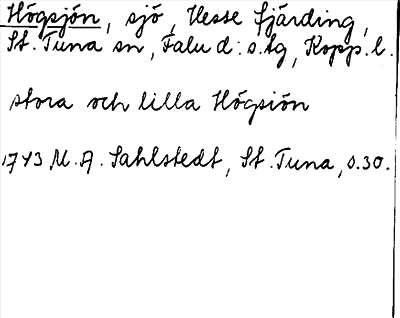 Högsjön, sjö, Hesse fjärding,
St. Tuna sn, Falu d:s. tg, Kopp. l.
stora och lilla Högsiön
1743 M. A. Sahlstedt, St. Tuna, s.30.